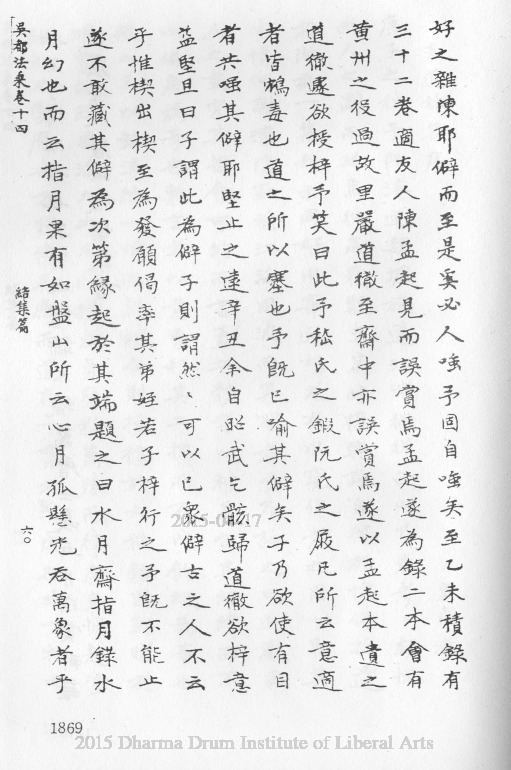 好之雜陳耶僻而至是奚必人嗤予固自嗤矣至乙未積錄有
三十二卷適友人陳孟起見而誤賞焉孟起遂為錄二本會有
黃州之役過故里嚴道徹至齋中亦誤賞焉遂以孟起本遺之
道徹遽欲授梓予笑曰此予嵇氏之鍛阮氏之屐凡所云意適
者皆鴆毒也道之所以塞也予既已喻其僻矣子乃欲使有目
者共嗤其僻耶堅止之遠辛丑余自昭武乞骸歸道徹欲梓意
益堅且曰子謂此為僻子則謂然〻可以已眾僻古之人不云
乎惟楔出楔至為發願偈率其弟姪若子梓行之予既不能止
遂不敢藏其僻為次第緣起於其端題之曰水月齋指月錄水
月幻也而云指月果有如盤山所云心月孤懸光吞萬象者乎
吳都法乘卷十四
結集篇
六〇
1869
2015-04-17
2015 Dharma Drum Institute of Liberal Arts